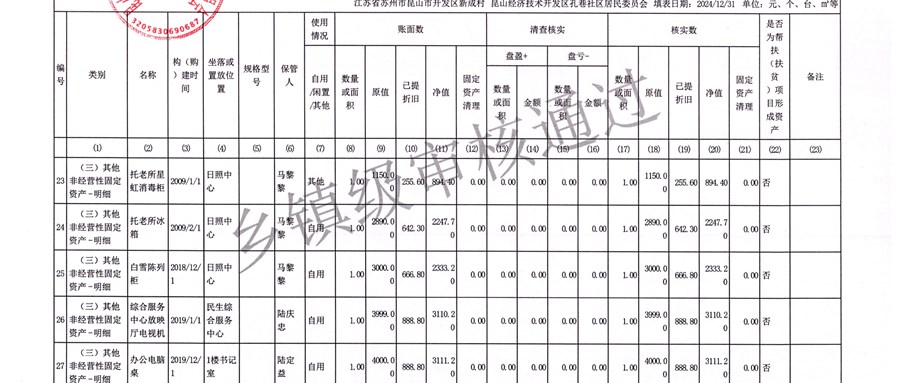 江苏省苏州市昆山市开发区新成村 昆山经济技术开发区孔巷社区居民委员会 填表日期：2024/12/31 单位：元、个、台、㎡等
3205830690687
乡镇级审核通过
编号 类别 名称 构（购）建时间 坐落或置放位置 规格型号 保管人 使用情况 账面数 清查核实 核实数 是否为帮扶（扶贫）项目形成资产 备注
自用/闲置/其他 数量或面积 原值 已提折旧 净值 固定资产清理 盘盈+ 盘亏- 数量或面积 原值 已提折旧 净值 固定资产清理
数量或面积 金额 数量或面积 金额
(1) (2) (3) (4) (5) (6) (7) (8) (9) (10) (11) (12) (13) (14) (15) (16) (17) (18) (19) (20) (21) (22) (23)
23 （三）其他非经营性固定资产-明细 托老所星虹消毒柜 2009/1/1 日照中心 马黎黎 其他 1.00 1150.00 255.60 894.40 0.00 0.00 0.00 0.00 0.00 1.00 1150.00 255.60 894.40 0.00 否
24 （三）其他非经营性固定资产-明细 托老所冰箱 2009/2/1 日照中心 马黎黎 自用 1.00 2890.00 642.30 2247.70 0.00 0.00 0.00 0.00 0.00 1.00 2890.00 642.30 2247.70 0.00 否
25 （三）其他非经营性固定资产-明细 白雪陈列柜 2018/12/1 日照中心 马黎黎 自用 1.00 3000.00 666.80 2333.20 0.00 0.00 0.00 0.00 0.00 1.00 3000.00 666.80 2333.20 0.00 否
26 （三）其他非经营性固定资产-明细 综合服务中心放映厅电视机 2019/1/1 民生综合服务中心 陆庆忠 自用 1.00 3999.00 888.80 3110.20 0.00 0.00 0.00 0.00 0.00 1.00 3999.00 888.80 3110.20 0.00 否
27 （三）其他非经营性固定资产-明细 办公电脑桌 2019/12/1 1楼书记室 陆定益 自用 1.00 4000.00 888.80 3111.20 0.00 0.00 0.00 0.00 0.00 1.00 4000.00 888.80 3111.20 0.00 否